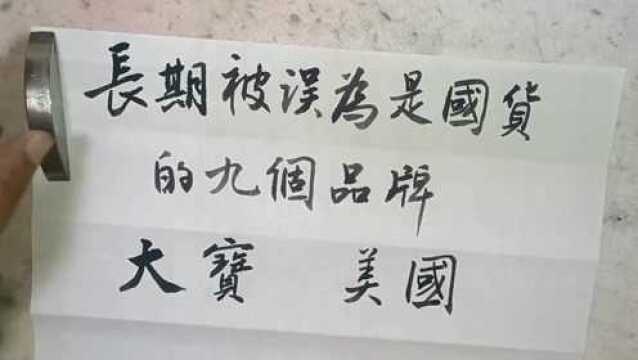 長期被误為是國貨
的九個品牌
大寶 美國